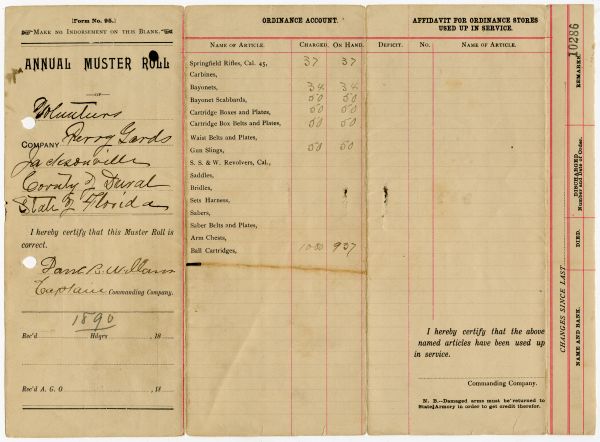 [Form No. 98.]
MAKE NO INDORSEMENT ON THIS BLANK.
ANNUAL MUSTER ROLL
OF
Volunteers
COMPANY Perry Gards
Jacksonville
County of Duval
State of Florida
I hereby certify that this Muster Roll is
correct.
B. Williams
Captain Commanding Company.
1890
Rec'd Hdqrs , 18
Rec'd A. G. O , 18
ORDINANCE ACCOUNT.
NAME OF ARTICLE. CHARGED. ON HAND.
Springfield Rifles, Cal. 45, 37 37
Carbines,
Bayonets, 34 34
Bayonet Scabbards, 50 50
Cartridge Boxes and Plates, 50 50
Cartridge Box Belts and Plates, 50 50
Waist Belts and Plates,
Gun Slings, 50 50
S. S. & W. Revolvers, Cal.,
Saddles,
Bridles,
Sets Harness,
Sabers,
Saber Belts and Plates,
Arm Chests,
Ball Cartridges, 1000 937
AFFIDAVIT FOR ORDINANCE STORES
USED UP IN SERVICE.
DEFICIT. NO. NAME OF ARTICLE.
I hereby certify that the above
named articles have been used up
in service.
Commanding Company.
N. B.—Damaged arms must be returned to
State Armory in order to get credit therefor.
10286
CHANGES SINCE LAST
NAME AND RANK.
DIED.
DISCHARGED.
Number and Date of Order.
REMARKS.